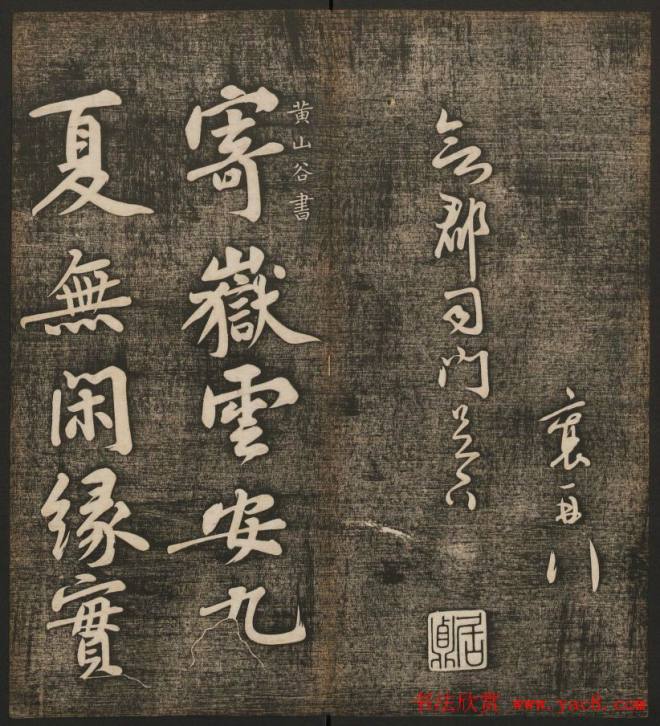 襄再
郡司門足下
黃山谷書
寄嶽雲安九
夏無閑緣實
书法欣赏 www.yac8.com